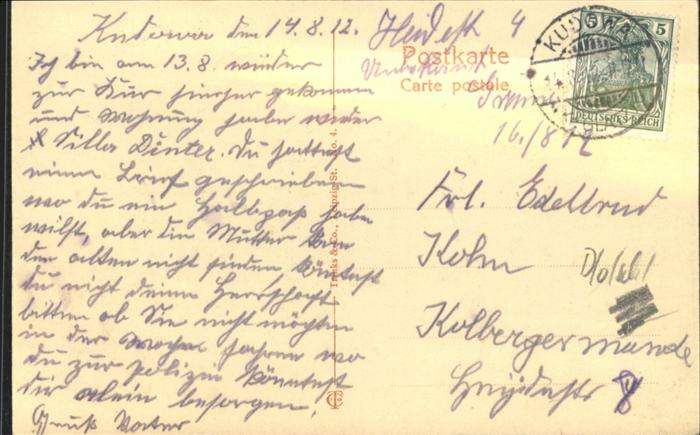 Kudowa den 14.8.12.
Ich bin am 13.8. wieder
zur Kur hierher gekommen
und Wohnung habe wieder
Villa Dinter. Du hattest
einen Brief geschrieben
wo du ein haben
willst, aber die Mutter kann
den alten nicht finden, könntest
du nicht deine Herrschaft
bitten ob Sie nicht möchten
in der Woche fahren wo
du zur Polizei könntest
dir alein besorgen.
Gruß Vater
Heidestr 4
Postkarte
Carte postale
Unbekannt
16./8 12
KUDOWA
5 5
DEUTSCHES REICH
Frl. Edeltrud
Kohn
Kolbergermünde
8
& Co., Leipzig